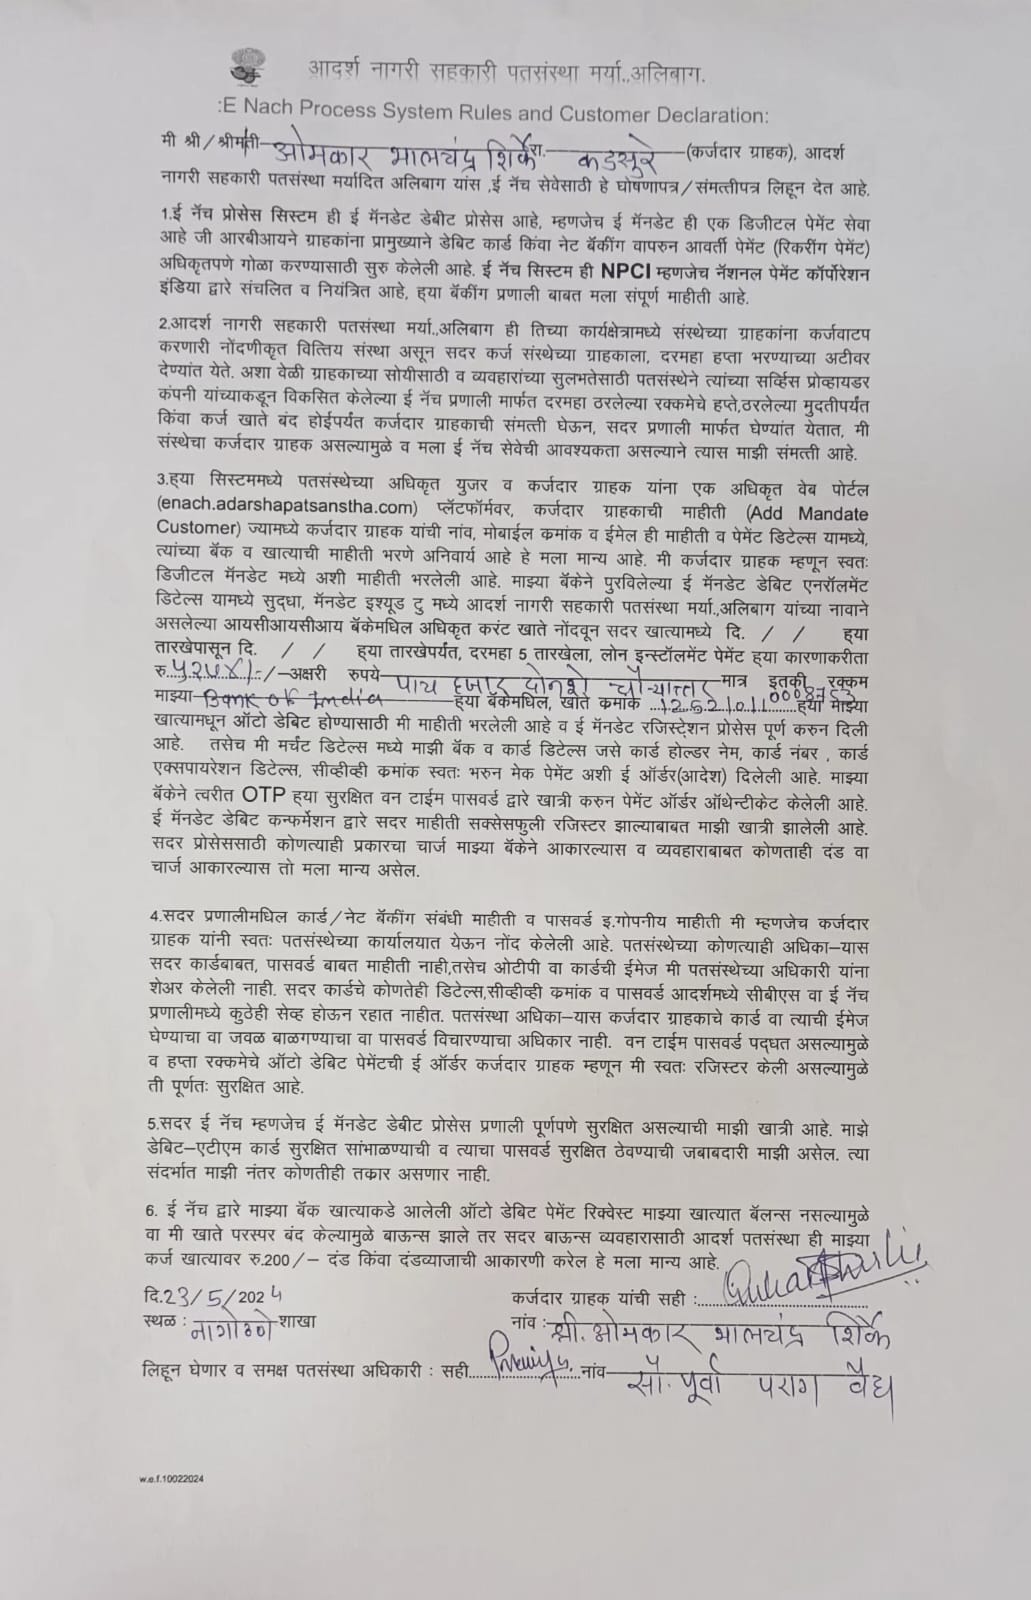 आदर्श नागरी सहकारी पतसंस्था मर्या..अलिबाग.
:E Nach Process System Rules and Customer Declaration:
मी श्री/श्रीमती ओमकार भालचंद्र शिर्के रा. कडसुरे (कर्जदार ग्राहक), आदर्श
नागरी सहकारी पतसंस्था मर्यादित अलिबाग यांस ,ई नॅच सेवेसाठी हे घोषणापत्र/संमत्तीपत्र लिहून देत आहे.
1.ई नॅच प्रोसेस सिस्टम ही ई मॅनडेट डेबीट प्रोसेस आहे, म्हणजेच ई मॅनडेट ही एक डिजीटल पेमेंट सेवा
आहे जी आरबीआयने ग्राहकांना प्रामुख्याने डेबिट कार्ड किंवा नेट बॅकींग वापरुन आवर्ती पेमेंट (रिकरींग पेमेंट)
अधिकृतपणे गोळा करण्यासाठी सुरु केलेली आहे. ई नॅच सिस्टम ही NPCI म्हणजेच नॅशनल पेमेंट कॉर्पोरेशन
इंडिया द्वारे संचलित व नियंत्रित आहे, ह्या बॅकींग प्रणाली बाबत मला संपूर्ण माहीती आहे.
2.आदर्श नागरी सहकारी पतसंस्था मर्या..अलिबाग ही तिच्या कार्यक्षेत्रामध्ये संस्थेच्या ग्राहकांना कर्जवाटप
करणारी नोंदणीकृत वित्तिय संस्था असून सदर कर्ज संस्थेच्या ग्राहकाला, दरमहा हप्ता भरण्याच्या अटीवर
देण्यांत येते. अशा वेळी ग्राहकाच्या सोयीसाठी व व्यवहारांच्या सुलभतेसाठी पतसंस्थेने त्यांच्या सर्व्हिस प्रोव्हायडर
कंपनी यांच्याकडून विकसित केलेल्या ई नॅच प्रणाली मार्फत दरमहा ठरलेल्या रक्कमेचे हप्ते,ठरलेल्या मुदतीपर्यंत
किंवा कर्ज खाते बंद होईपर्यंत कर्जदार ग्राहकाची संमत्ती घेऊन, सदर प्रणाली मार्फत घेण्यांत येतात, मी
संस्थेचा कर्जदार ग्राहक असल्यामुळे व मला ई नॅच सेवेची आवश्यकता असल्याने त्यास माझी संमत्ती आहे.
3.ह्या सिस्टममध्ये पतसंस्थेच्या अधिकृत युजर व कर्जदार ग्राहक यांना एक अधिकृत वेब पोर्टल
(enach.adarshapatsanstha.com) प्लॅटफॉर्मवर, कर्जदार ग्राहकाची माहीती (Add Mandate
Customer) ज्यामध्ये कर्जदार ग्राहक यांची नांव, मोबाईल कमांक व ईमेल ही माहीती व पेमेंट डिटेल्स यामध्ये,
त्यांच्या बॅक व खात्याची माहीती भरणे अनिवार्य आहे हे मला मान्य आहे. मी कर्जदार ग्राहक म्हणून स्वतः
डिजीटल मॅनडेट मध्ये अशी माहीती भरलेली आहे. माझ्या बॅकेने पुरविलेल्या ई मॅनडेट डेबिट एनरॉलमेंट
डिटेल्स यामध्ये सुद्धा, मॅनडेट इश्यूड टु मध्ये आदर्श नागरी सहकारी पतसंस्था मर्या.,अलिबाग यांच्या नावाने
असलेल्या आयसीआयसीआय बॅकेमधिल अधिकृत करंट खाते नोंदवून सदर खात्यामध्ये दि. / / ह्या
तारखेपासून दि. / / ह्या तारखेपर्यंत, दरमहा 5 तारखेला, लोन इन्स्टॉलमेंट पेमेंट ह्या कारणाकरीता
रु. ५२७४/-/–अक्षरी रुपये पाच हजार दोनशे चौऱ्यात्तर मात्र इतकी रक्कम
माझ्या Bank of India ह्या बॅकेमधिल, खाते कमांक 126210110008753 ह्या माझ्या
खात्यामधून ऑटो डेबिट होण्यासाठी मी माहीती भरलेली आहे व ई मॅनडेट रजिस्ट्रेशन प्रोसेस पूर्ण करुन दिली
आहे. तसेच मी मर्चंट डिटेल्स मध्ये माझी बॅक व कार्ड डिटेल्स जसे कार्ड होल्डर नेम, कार्ड नंबर , कार्ड
एक्सपायरेशन डिटेल्स, सीव्हीव्ही कमांक स्वतः भरुन मेक पेमेंट अशी ई ऑर्डर(आदेश) दिलेली आहे. माझ्या
बॅकेने त्वरीत OTP ह्या सुरक्षित वन टाईम पासवर्ड द्वारे खात्री करुन पेमेंट ऑर्डर ऑथेन्टीकेट केलेली आहे.
ई मॅनडेट डेबिट कन्फर्मेशन द्वारे सदर माहीती सक्सेसफुली रजिस्टर झाल्याबाबत माझी खात्री झालेली आहे.
सदर प्रोसेससाठी कोणत्याही प्रकारचा चार्ज माझ्या बॅकेने आकारल्यास व व्यवहाराबाबत कोणताही दंड वा
चार्ज आकारल्यास तो मला मान्य असेल.
4.सदर प्रणालीमधिल कार्ड/नेट बॅकींग संबंधी माहीती व पासवर्ड इ.गोपनीय माहीती मी म्हणजेच कर्जदार
ग्राहक यांनी स्वतः पतसंस्थेच्या कार्यालयात येऊन नोंद केलेली आहे. पतसंस्थेच्या कोणत्याही अधिका–यास
सदर कार्डबाबत, पासवर्ड बाबत माहीती नाही,तसेच ओटीपी वा कार्डची ईमेज मी पतसंस्थेच्या अधिकारी यांना
शेअर केलेली नाही. सदर कार्डचे कोणतेही डिटेल्स,सीव्हीव्ही कमांक व पासवर्ड आदर्शमध्ये सीबीएस वा ई नॅच
प्रणालीमध्ये कुठेही सेव्ह होऊन रहात नाहीत. पतसंस्था अधिका–यास कर्जदार ग्राहकाचे कार्ड वा त्याची ईमेज
घेण्याचा वा जवळ बाळगण्याचा वा पासवर्ड विचारण्याचा अधिकार नाही. वन टाईम पासवर्ड पद्धत असल्यामुळे
व हप्ता रक्कमेचे ऑटो डेबिट पेमेंटची ई ऑर्डर कर्जदार ग्राहक म्हणून मी स्वतः रजिस्टर केली असल्यामुळे
ती पूर्णतः सुरक्षित आहे.
5.सदर ई नॅच म्हणजेच ई मॅनडेट डेबीट प्रोसेस प्रणाली पूर्णपणे सुरक्षित असल्याची माझी खात्री आहे. माझे
डेबिट–एटीएम कार्ड सुरक्षित सांभाळण्याची व त्याचा पासवर्ड सुरक्षित ठेवण्याची जबाबदारी माझी असेल. त्या
संदर्भात माझी नंतर कोणतीही तकार असणार नाही.
6. ई नॅच द्वारे माझ्या बॅक खात्याकडे आलेली ऑटो डेबिट पेमेंट रिक्वेस्ट माझ्या खात्यात बॅलन्स नसल्यामुळे
वा मी खाते परस्पर बंद केल्यामुळे बाऊन्स झाले तर सदर बाऊन्स व्यवहारासाठी आदर्श पतसंस्था ही माझ्या
कर्ज खात्यावर रु.200/– दंड किंवा दंडव्याजाची आकारणी करेल हे मला मान्य आहे.
दि.23/5/2024 कर्जदार ग्राहक यांची सही :
स्थळ : नागोठणे शाखा नांव : श्री. ओमकार भालचंद्र शिर्के
लिहून घेणार व समक्ष पतसंस्था अधिकारी : सही नांव– सौ. पूर्वा पराग वैद्य
w.e.f.10022024